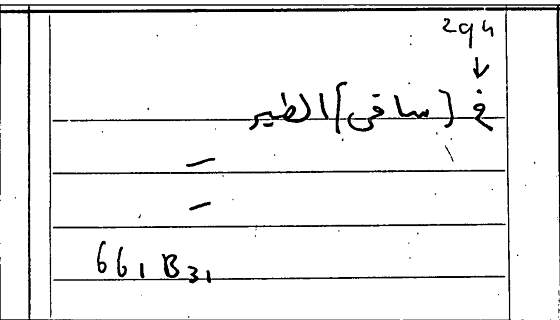 294
↓
في [ساقی] الطير
—
—
661 B31